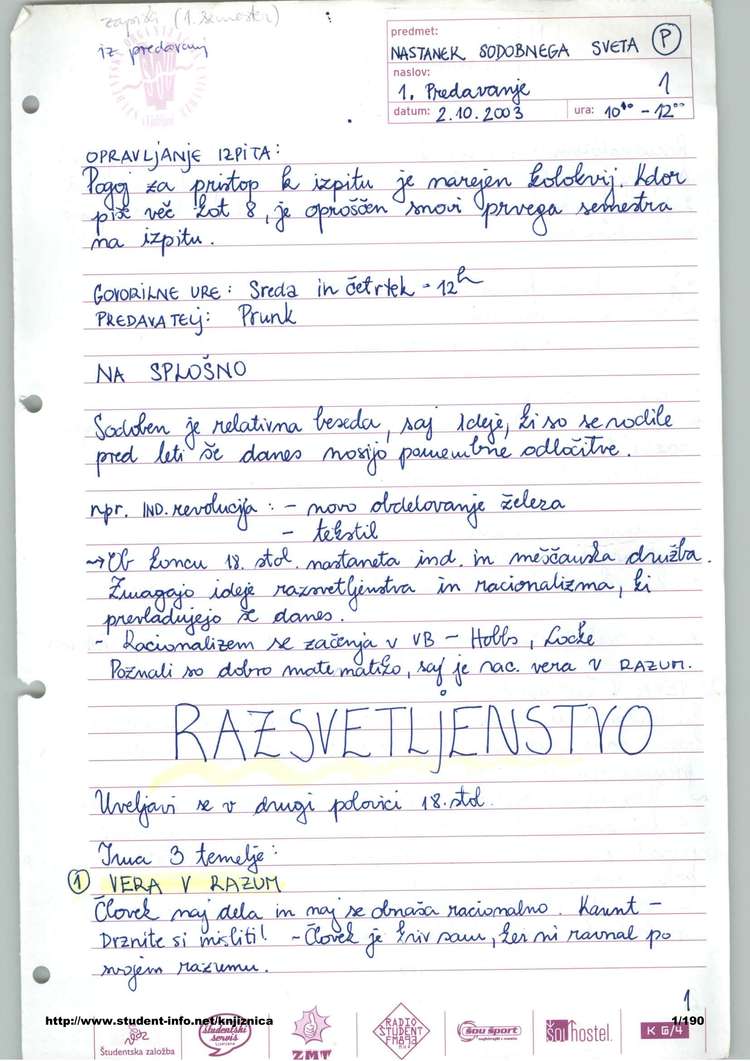 zapiski (1. semester)
iz predavanj
predmet:
NASTANEK SODOBNEGA SVETA P
naslov:
1. Predavanje 1
datum: 2.10.2003 ura: 10¹⁰ - 12⁰⁰
OPRAVLJANJE IZPITA:
Pogoj za pristop k izpitu je narejen kolokvij. Kdor
piše več kot 8, je oproščen snovi prvega semestra
na izpitu.
GOVORILNE URE: Sreda in četrtek - 12h
PREDAVATELJ: Prunk
NA SPLOŠNO
Sodoben je relativna beseda, saj ideje, ki so se rodile
pred leti še danes nosijo pomembne odločitve.
npr. IND. revolucija: - novo obdelovanje železa
- tekstil
→ Ob koncu 18. stol. nastaneta ind. in meščanska družba.
Zmagajo ideje razsvetljenstva in racionalizma, ki
prevladujejo še danes.
- Racionalizem se začenja v VB - Hobbs, Locke
Poznali so dobro matematiko, saj je rac. vera v RAZUM.
RAZSVETLJENSTVO
Uveljavi se v drugi polovici 18. stol.
Ima 3 temelje:
1 VERA V RAZUM
Človek naj dela in naj se obnaša racionalno. Kannt -
Drznite si misliti! - Človek je kriv sam, ker ni ravnal po
svojem razumu.
1
http://www.student-info.net/knjiznica 1/190
Študentska založba
študentski servis
ZMT
RADIO ŠTUDENT FM 89,3
šou šport
šou hostel.
K G/4